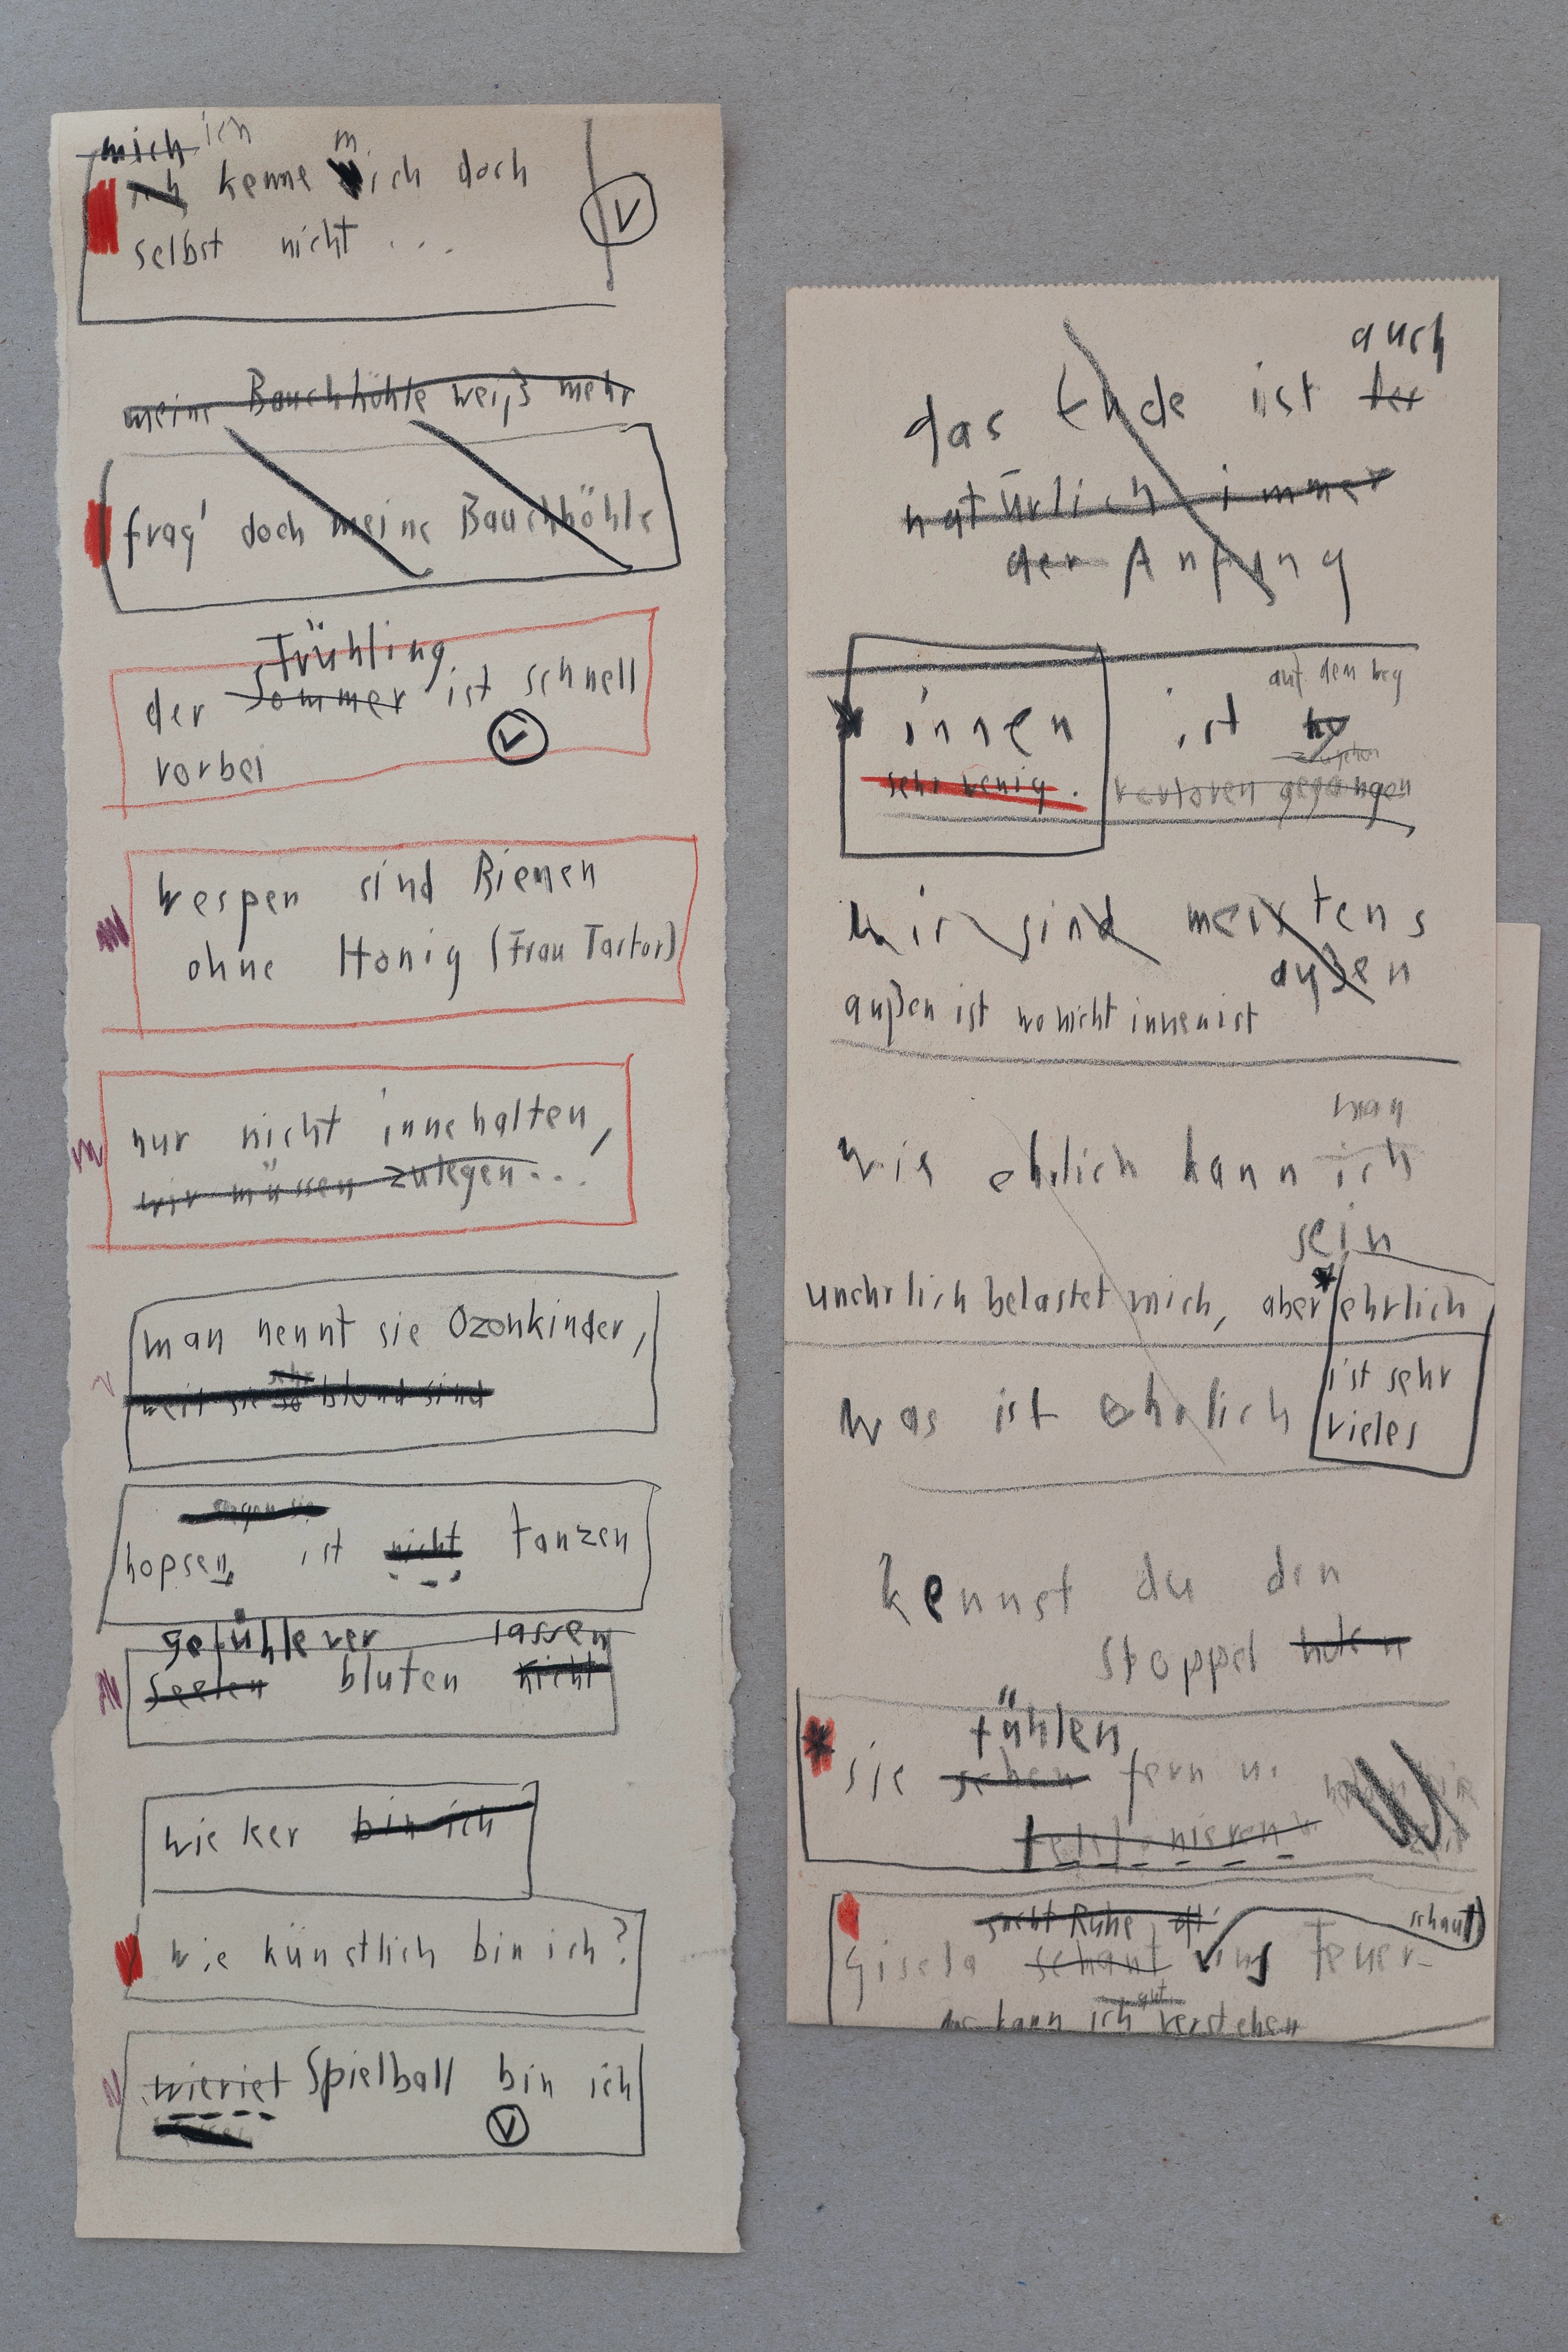 mich ich
ich kenne mich doch
selbst nicht ...
meine Bauchhöhle weiß mehr
frag' doch meine Bauchhöhle
Frühling
der Sommer ist schnell
vorbei
Wespen sind Bienen
ohne Honig (Frau Tartor)
nur nicht innehalten,
wir müssen zulegen...
man nennt sie Ozonkinder,
sehr
weil sie so blond sind
hopsen ist nicht tanzen
gefühle ver lassen
Seelen bluten nicht
wie ker bin ich
wie künstlich bin ich?
wieviel Spielball bin ich
auch
das Ende ist der
natürlich immer
der Anfang
auf dem weg
innen ist
sehr wenig. verloren gegangen
wir sind meistens
außen
außen ist wo nicht innen ist
man
wie ehrlich kann ich
sein
unehrlich belastet mich, aber ehrlich
ist sehr
was ist ehrlich
vieles
kennst du den
stoppel
fühlen
sie sehen fern u.
telefonieren
sucht Ruhe schaut
Gisela schaut ins Feuer-
gut
das kann ich verstehen